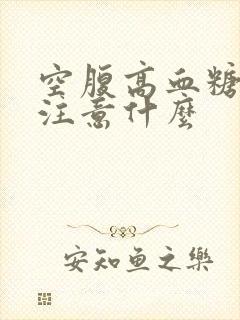 空腹高血糖
注意什麼
安知鱼之樂